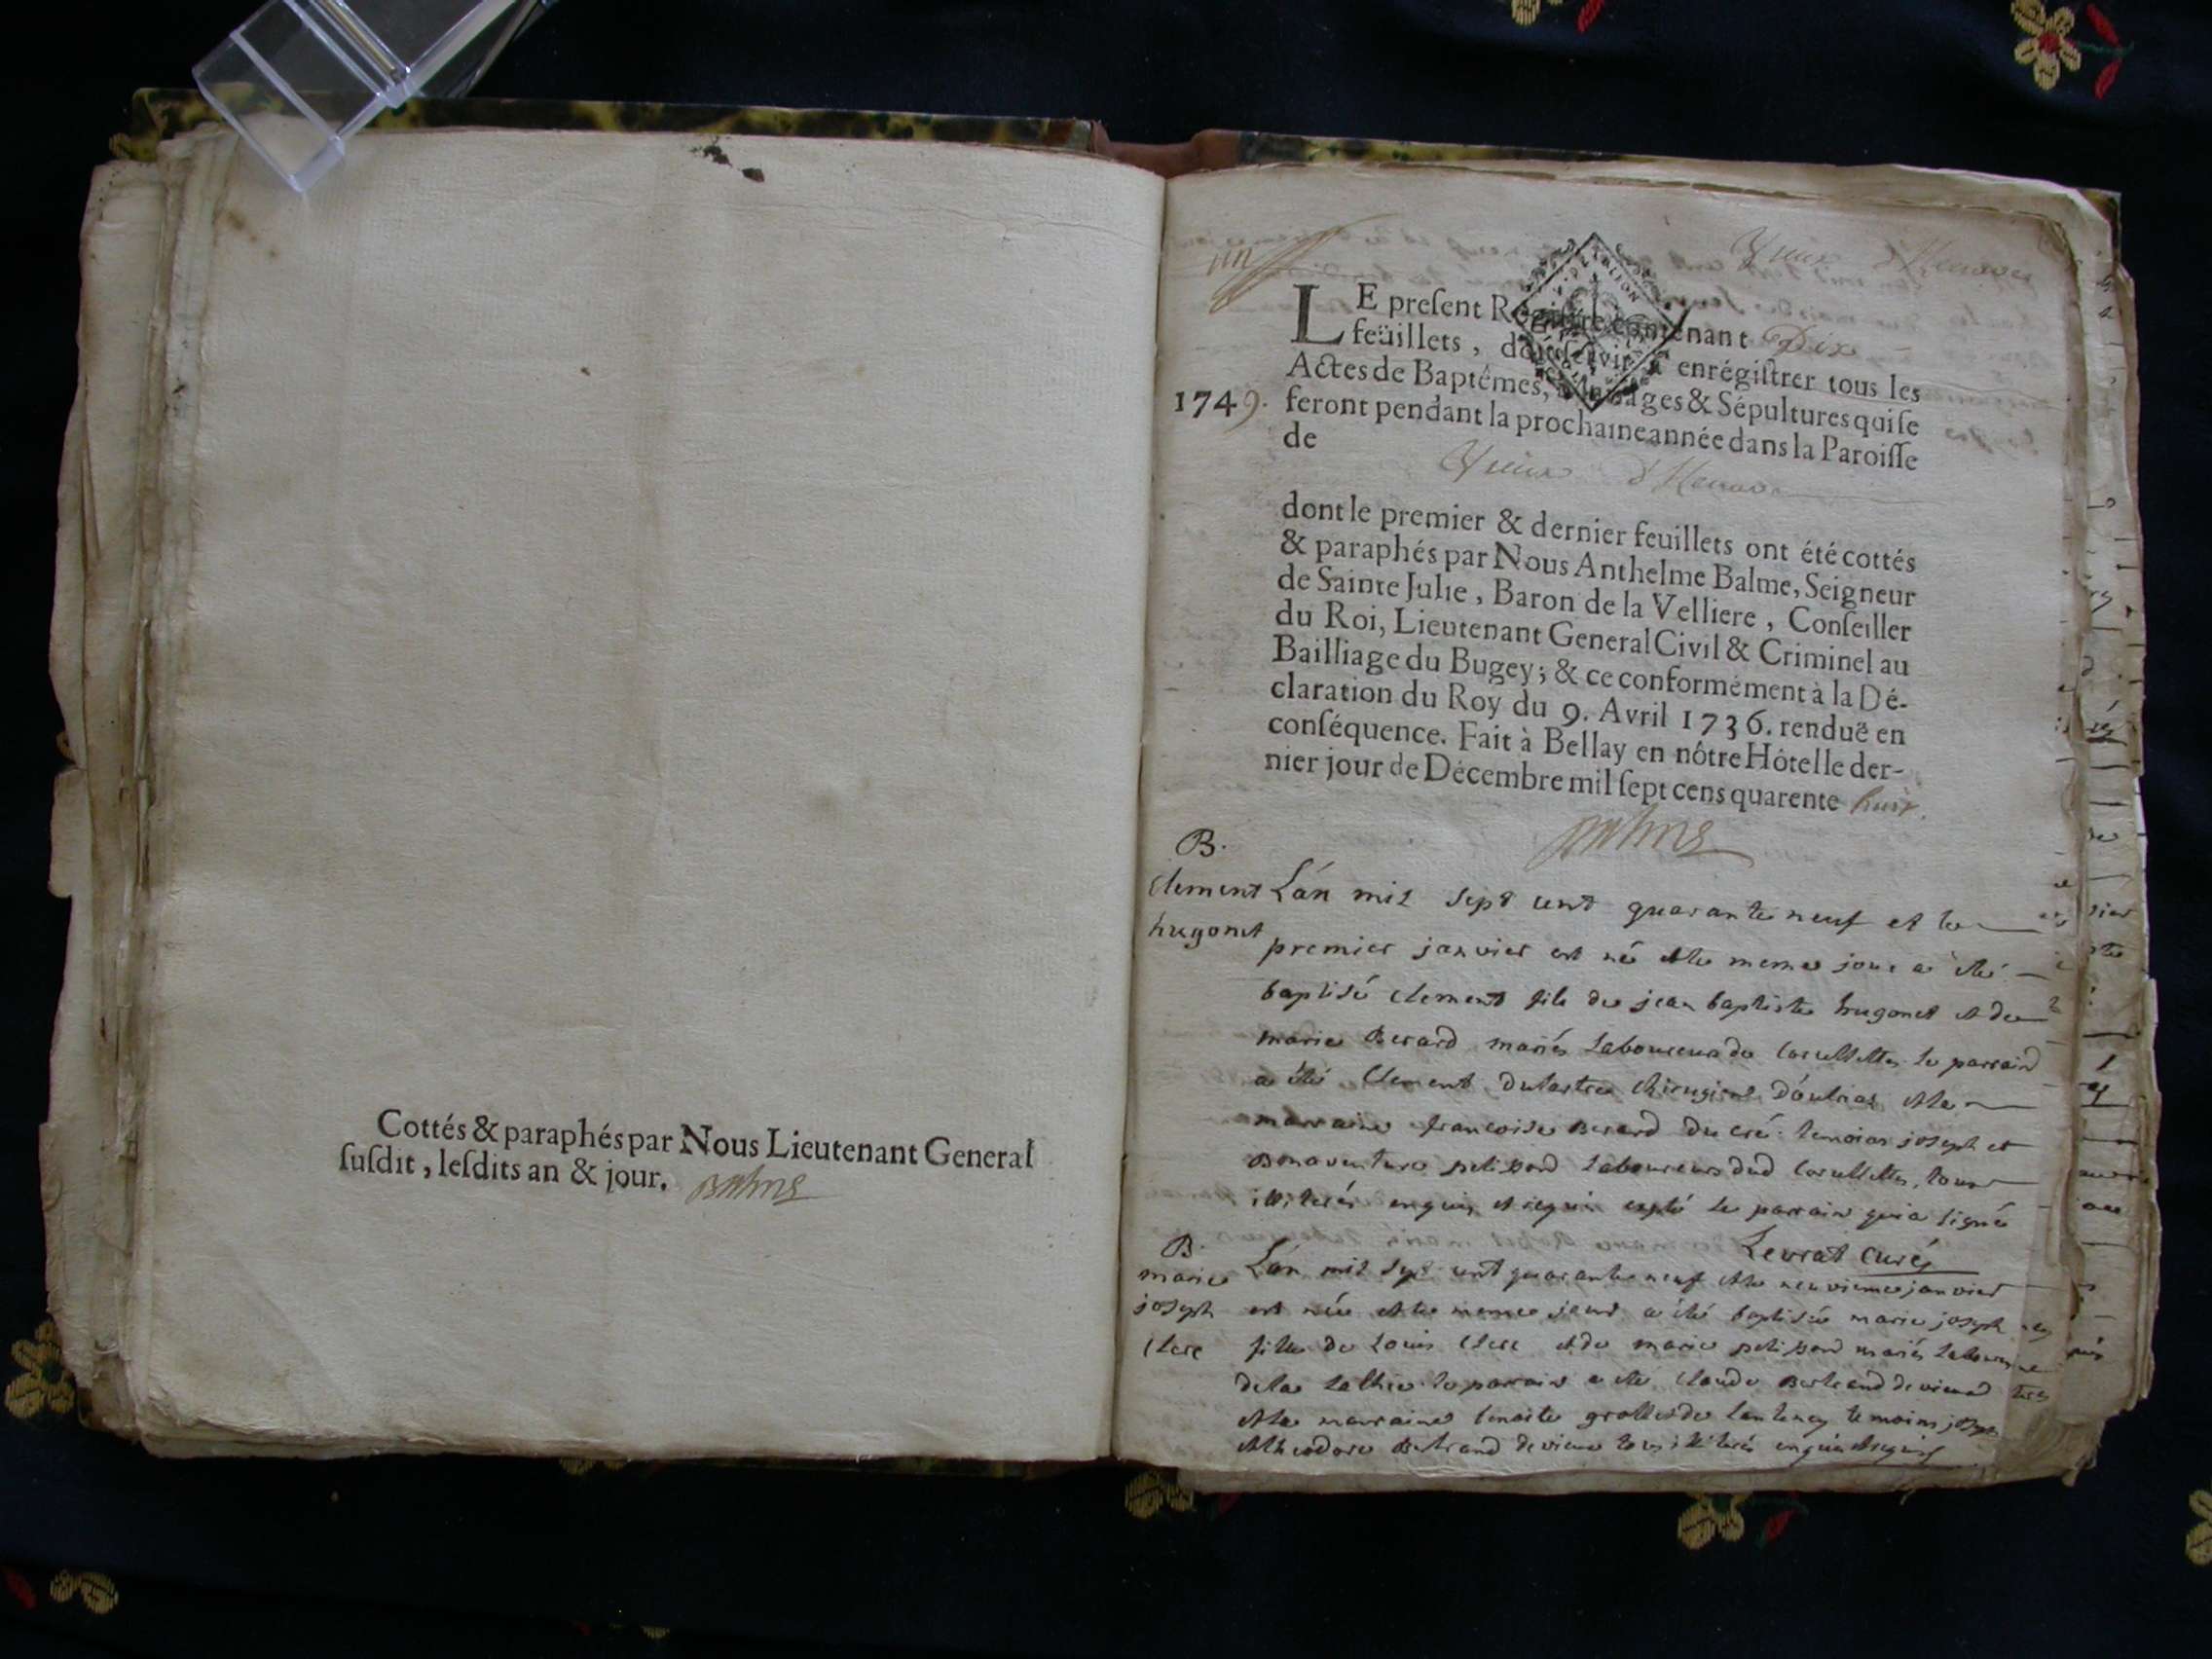 Cottés & paraphés par Nous Lieutenant General
ſuſdit, leſdits an & jour. Balme
un
Yieux d'Yzenave
LE preſent Regiſtre contenant Dix
feüillets, doit ſervir à enrégiſtrer tous les
Actes de Baptêmes, Mariages & Sépultures qui ſe
1749. feront pendant la prochaine année dans la Paroiſſe
de
dont le premier & dernier feuillets ont été cottés
& paraphés par Nous Anthelme Balme, Seigneur
de Sainte Julie, Baron de la Velliere, Conſeiller
du Roi, Lieutenant General Civil & Criminel au
Bailliage du Bugey; & ce conformément à la Dé-
claration du Roy du 9. Avril 1736. renduë en
conſéquence. Fait à Bellay en nôtre Hôtel le der-
nier jour de Décembre mil ſept cens quarente huit.
Balme
B.
Clement
hugonet
L'án mil sept cent quarante neuf et le
premier janvier est né et le meme jour a été
baptisé Clement fils de jean baptiste hugonet et de
marie Berard mariés Laboureur de le parrain
a été Clement dutartre Chirugien et la
marraine francoise Berard du temoins joseph et
Bonaventure petitjord Laboureurs dud tous
illiterés enquis et requis le parrain qui a signé
Levrat curé
B.
marie
joseph
Clere
L'án mil sept cent quarante neuf et le neuvieme janvier
est née et le meme jour a été baptisée marie joseph
fille de Louis Clere et de marie petitjord mariés
de la le parrain a été Claude Bertrand de vieud
et la marraine benoite de Lantenay temoins joseph
et theodore Bertrand de vieu tous illiterés enquis et requis